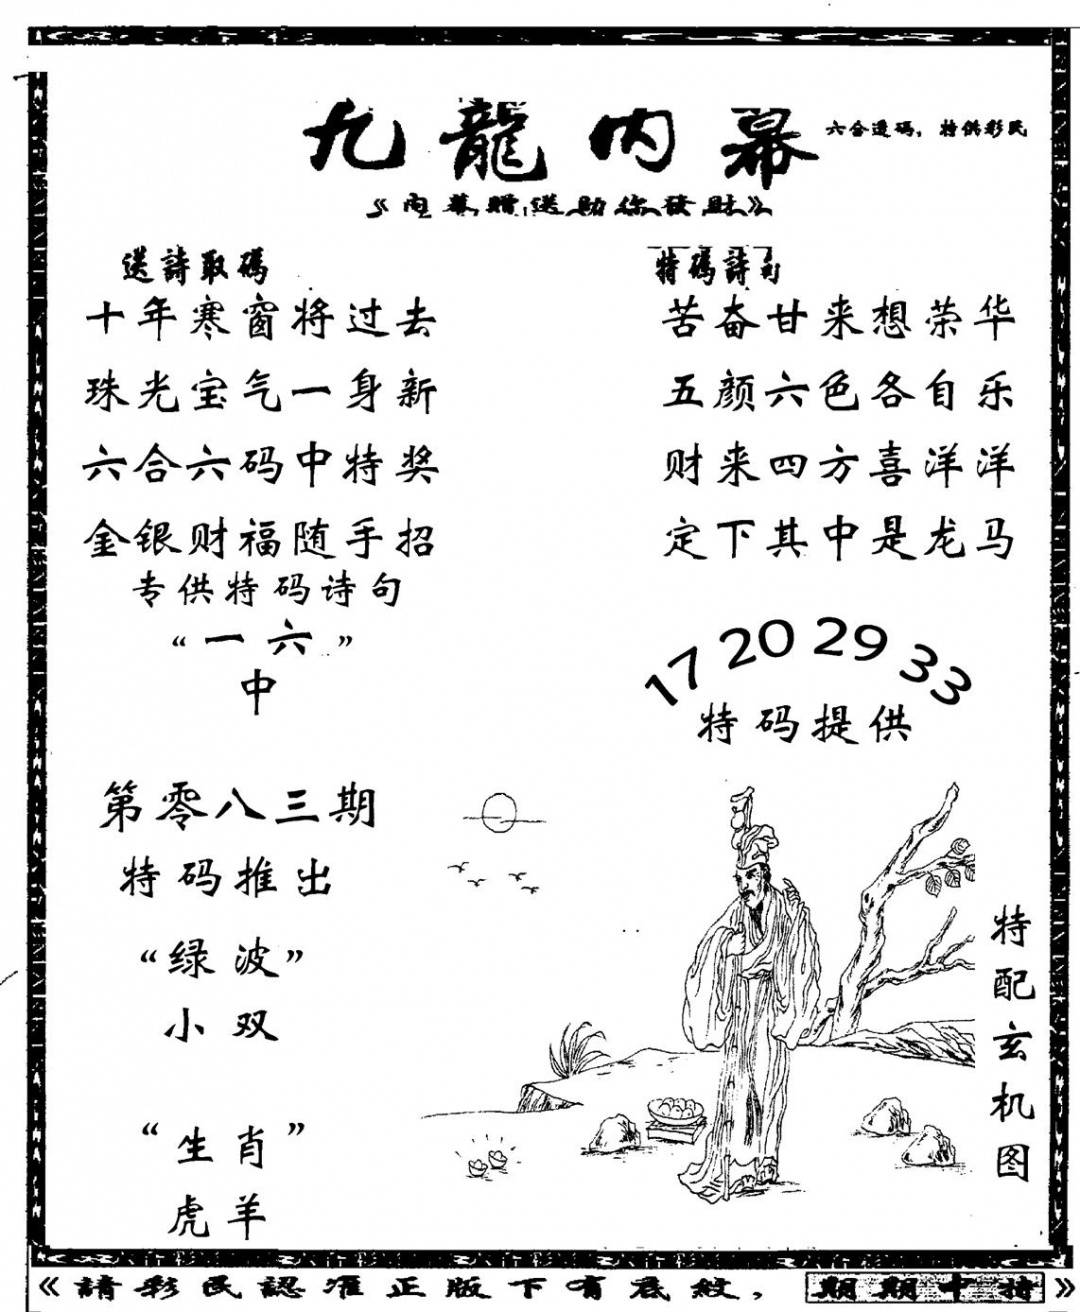 九龍内幕
六合透码，特供彩民
《内幕赠送助你發财》
送詩取碼
十年寒窗将过去
珠光宝气一身新
六合六码中特奖
金银财福随手招
专供特码诗句
“一六”
中
特碼詩句
苦奋甘来想荣华
五颜六色各自乐
财来四方喜洋洋
定下其中是龙马
17 20 29 33
特码提供
第零八三期
特码推出
“绿波”
小双
“生肖”
虎羊
特配玄机图
《請彩民認准正版下有底紋，期期中特》